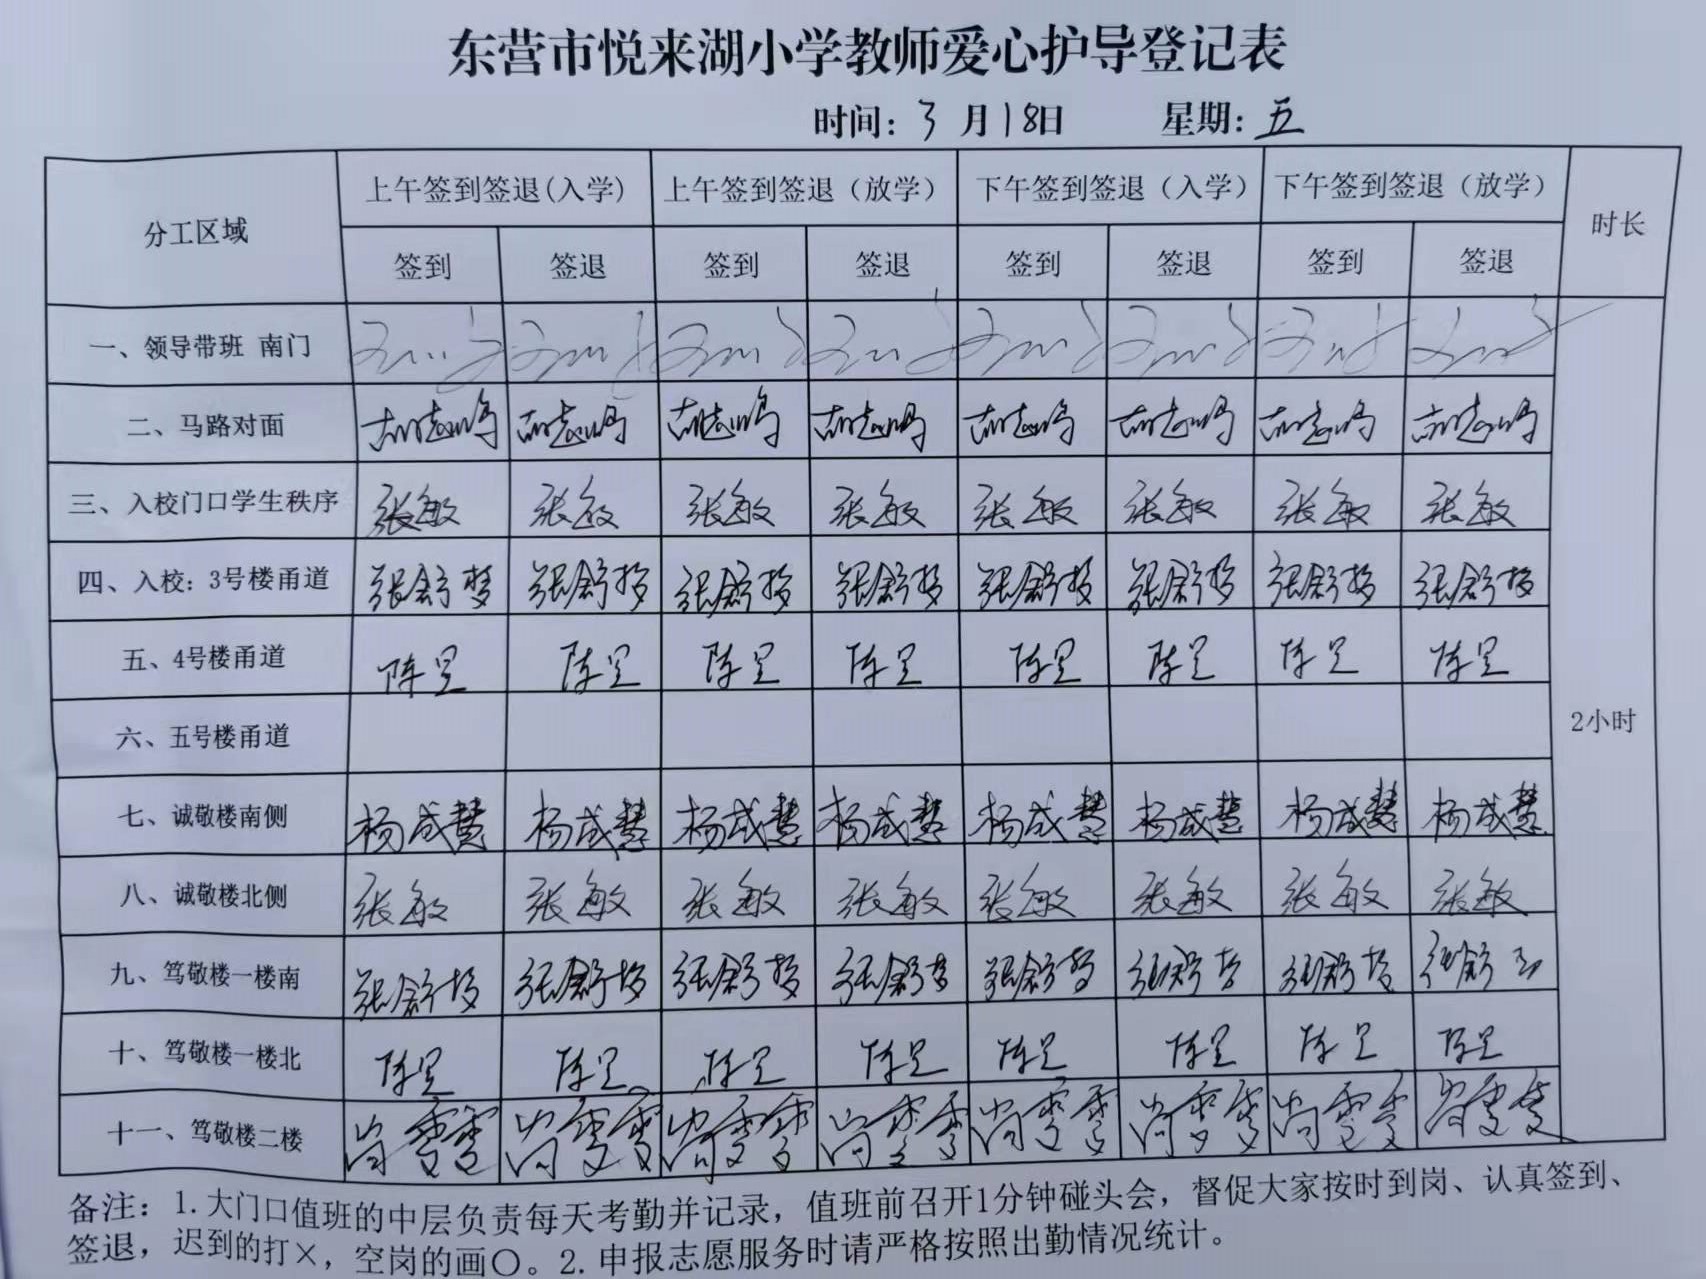 东营市悦来湖小学教师爱心护导登记表
时间：3月18日 星期：五
分工区域 上午签到签退(入学) 上午签到签退（放学） 下午签到签退（入学） 下午签到签退（放学） 时长
签到 签退 签到 签退 签到 签退 签到 签退
一、领导带班 南门
二、马路对面
三、入校门口学生秩序 张敏 张敏 张敏 张敏 张敏 张敏 张敏 张敏
四、入校：3号楼甬道 张舒梦 张舒梦 张舒梦 张舒梦 张舒梦 张舒梦 张舒梦 张舒梦
五、4号楼甬道 陈昱 陈昱 陈昱 陈昱 陈昱 陈昱 陈昱 陈昱
六、五号楼甬道
2小时
七、诚敬楼南侧 杨成慧 杨成慧 杨成慧 杨成慧 杨成慧 杨成慧 杨成慧 杨成慧
八、诚敬楼北侧 张敏 张敏 张敏 张敏 张敏 张敏 张敏 张敏
九、笃敬楼一楼南 张舒梦 张舒梦 张舒梦 张舒梦 张舒梦 张舒梦 张舒梦 张舒
十、笃敬楼一楼北 陈昱 陈昱 陈昱 陈昱 陈昱 陈昱 陈昱 陈昱
十一、笃敬楼二楼 尚雯雯 尚雯雯 尚雯雯 尚雯雯 尚雯雯 尚雯雯 尚雯雯 尚雯雯
备注：1.大门口值班的中层负责每天考勤并记录，值班前召开1分钟碰头会，督促大家按时到岗、认真签到、
签退，迟到的打×，空岗的画○。2.申报志愿服务时请严格按照出勤情况统计。